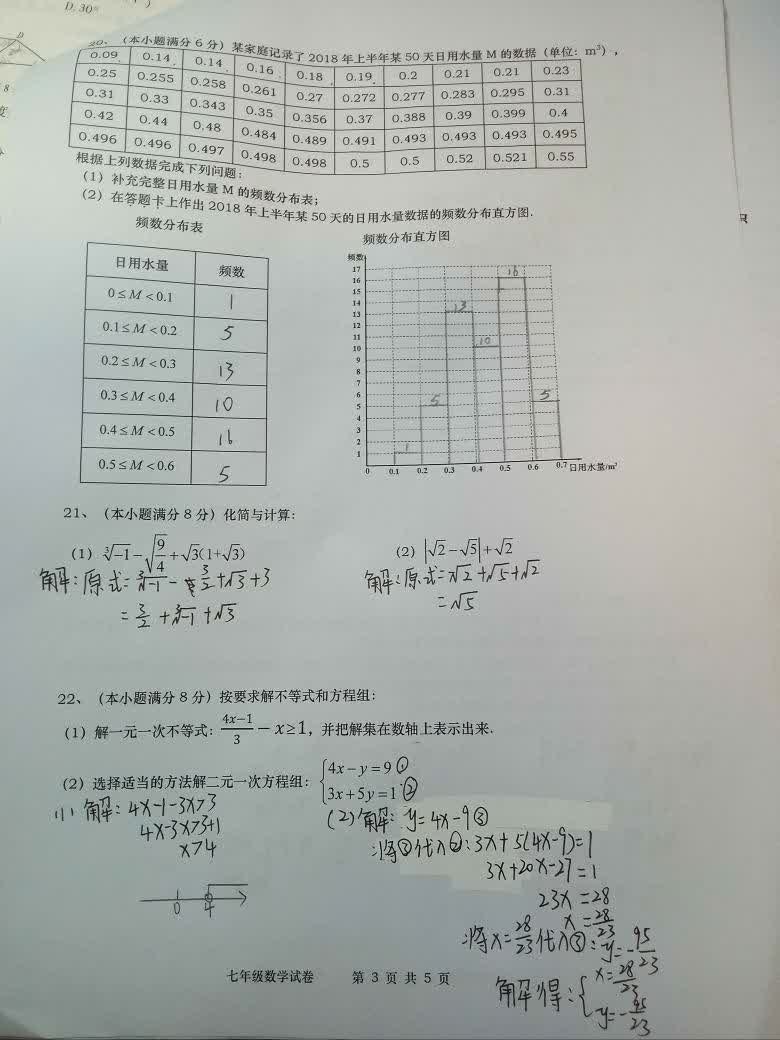 D. 30°
D
8
度
只
20、（本小题满分 6 分）某家庭记录了 2018 年上半年某 50 天日用水量 M 的数据（单位：m³），
0.09 0.14 0.14 0.16 0.18 0.19 0.2 0.21 0.21 0.23
0.25 0.255 0.258 0.261 0.27 0.272 0.277 0.283 0.295 0.31
0.31 0.33 0.343 0.35 0.356 0.37 0.388 0.39 0.399 0.4
0.42 0.44 0.48 0.484 0.489 0.491 0.493 0.493 0.493 0.495
0.496 0.496 0.497 0.498 0.498 0.5 0.5 0.52 0.521 0.55
根据上列数据完成下列问题：
（1）补充完整日用水量 M 的频数分布表；
（2）在答题卡上作出 2018 年上半年某 50 天的日用水量数据的频数分布直方图.
频数分布表
日用水量 频数
0≤M<0.1 1
0.1≤M<0.2 5
0.2≤M<0.3 13
0.3≤M<0.4 10
0.4≤M<0.5 16
0.5≤M<0.6 5
频数分布直方图
频数
17
16
15
14
13
12
11
10
9
8
7
6
5
4
3
2
1
1 5 13 10 16 5
0 0.1 0.2 0.3 0.4 0.5 0.6 0.7 日用水量/m³
21、（本小题满分 8 分）化简与计算：
（1）∛-1-√(9/4)+√3(1+√3)
解：原式=∛-1-3/2+√3+3
=3/2+∛-1+√3
（2）|√2-√5|+√2
解：原式=-√2+√5+√2
=√5
22、（本小题满分 8 分）按要求解不等式和方程组：
（1）解一元一次不等式：(4x-1)/3-x≥1，并把解集在数轴上表示出来.
（2）选择适当的方法解二元一次方程组：{4x-y=9 ①
3x+5y=1 ②
(1) 解：4x-1-3x>3
4x-3x>3+1
x>4
0 4
(2)解：y=4x-9③
将③代入②：3x+5(4x-9)=1
3x+20x-27=1
23x=28
x=28/23
将x=28/23代入③：y=-95/23
解得：{x=28/23
y=-95/23
七年级数学试卷 第 3 页 共 5 页